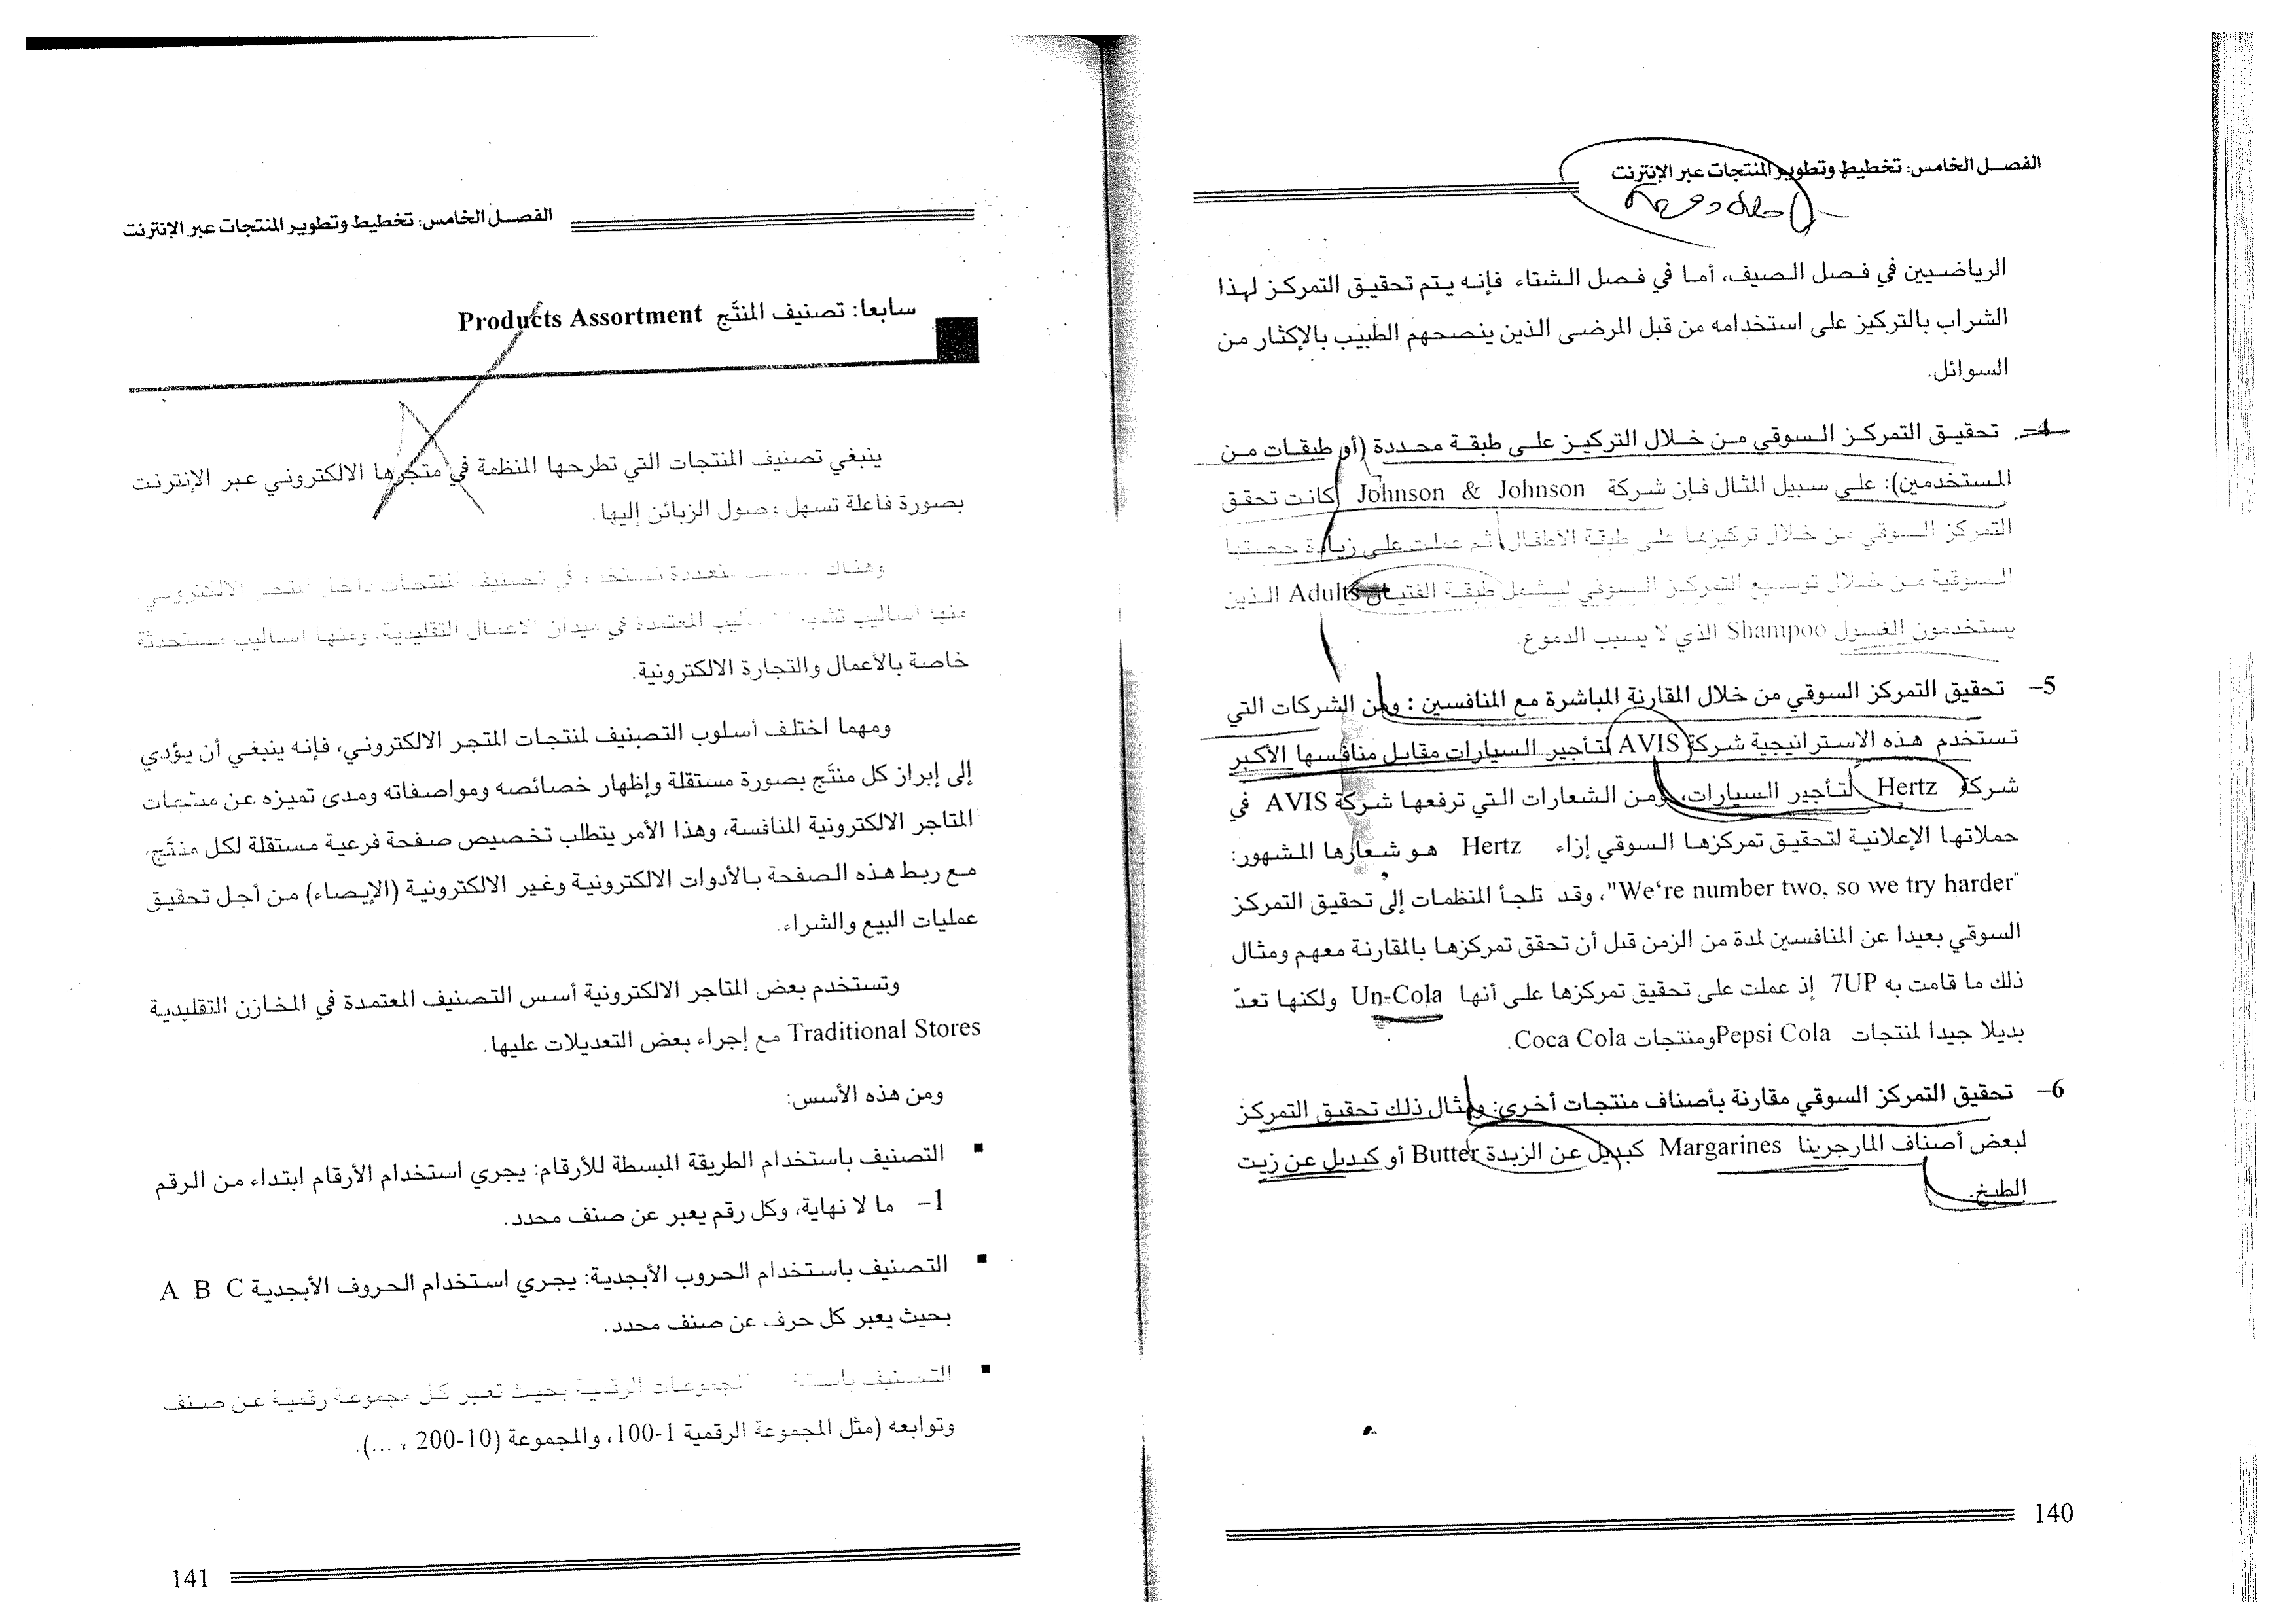 الفصل الخامس: تخطيط وتطوير المنتجات عبر الإنترنت
الرياضيين في فصل الصيف، أما في فصل الشتاء فإنه يتم تحقيق التمركز لهذا
الشراب بالتركيز على استخدامه من قبل المرضى الذين ينصحهم الطبيب بالإكثار من
السوائل.
4- تحقيق التمركز السوقي من خلال التركيز على طبقة محددة (أو طبقات من
المستخدمين): على سبيل المثال فإن شركة Johnson & Johnson كانت تحقق
التمركز السوقي من خلال تركيزها على طبقة الأطفال ثم عملت على زيادة حصتها
السوقية من خلال توسيع التمركز السوقي ليشمل طبقة الفتيان Adults الذين
يستخدمون الغسول Shampoo الذي لا يسبب الدموع.
5- تحقيق التمركز السوقي من خلال المقارنة المباشرة مع المنافسين : ومن الشركات التي
تستخدم هذه الاستراتيجية شركة AVIS لتأجير السيارات مقابل منافسها الأكبر
شركة Hertz لتأجير السيارات، ومن الشعارات التي ترفعها شركة AVIS في
حملاتها الإعلانية لتحقيق تمركزها السوقي إزاء Hertz هو شعارها المشهور:
"We're number two, so we try harder"، وقد تلجأ المنظمات إلى تحقيق التمركز
السوقي بعيدا عن المنافسين لمدة من الزمن قبل أن تحقق تمركزها بالمقارنة معهم ومثال
ذلك ما قامت به 7UP إذ عملت على تحقيق تمركزها على أنها Un-Cola ولكنها تعدّ
بديلا جيدا لمنتجات Pepsi Cola ومنتجات Coca Cola.
6- تحقيق التمركز السوقي مقارنة بأصناف منتجات أخرى: ومثال ذلك تحقيق التمركز
لبعض أصناف المارجرينا Margarines كبديل عن الزبدة Butter أو كبديل عن زيت
الطبخ.
140
الفصل الخامس: تخطيط وتطوير المنتجات عبر الإنترنت
سابعا: تصنيف المنتَج Products Assortment
ينبغي تصنيف المنتجات التي تطرحها المنظمة في متجرها الالكتروني عبر الإنترنت
بصورة فاعلة تسهل وصول الزبائن إليها.
وهناك متعددة تستخدم في تصنيف المنتجات داخل المتجر الالكتروني،
منها أساليب المعتمدة في ميدان الأعمال التقليدية، ومنها أساليب مستحدثة
خاصة بالأعمال والتجارة الالكترونية.
ومهما اختلف أسلوب التصنيف لمنتجات المتجر الالكتروني، فإنه ينبغي أن يؤدي
إلى إبراز كل منتَج بصورة مستقلة وإظهار خصائصه ومواصفاته ومدى تميزه عن منتجات
المتاجر الالكترونية المنافسة، وهذا الأمر يتطلب تخصيص صفحة فرعية مستقلة لكل منتَج،
مع ربط هذه الصفحة بالأدوات الالكترونية وغير الالكترونية (الإيصاء) من أجل تحقيق
عمليات البيع والشراء.
وتستخدم بعض المتاجر الالكترونية أسس التصنيف المعتمدة في المخازن التقليدية
Traditional Stores مع إجراء بعض التعديلات عليها.
ومن هذه الأسس:
▪ التصنيف باستخدام الطريقة المبسطة للأرقام: يجري استخدام الأرقام ابتداء من الرقم
1- ما لا نهاية، وكل رقم يعبر عن صنف محدد.
▪ التصنيف باستخدام الحروب الأبجدية: يجري استخدام الحروف الأبجدية A B C
بحيث يعبر كل حرف عن صنف محدد.
▪ التصنيف المجموعات الرقمية بحيث تعبر كل مجموعة رقمية عن صنف
وتوابعه (مثل المجموعة الرقمية 1-100، والمجموعة (10-200 ، ...).
141